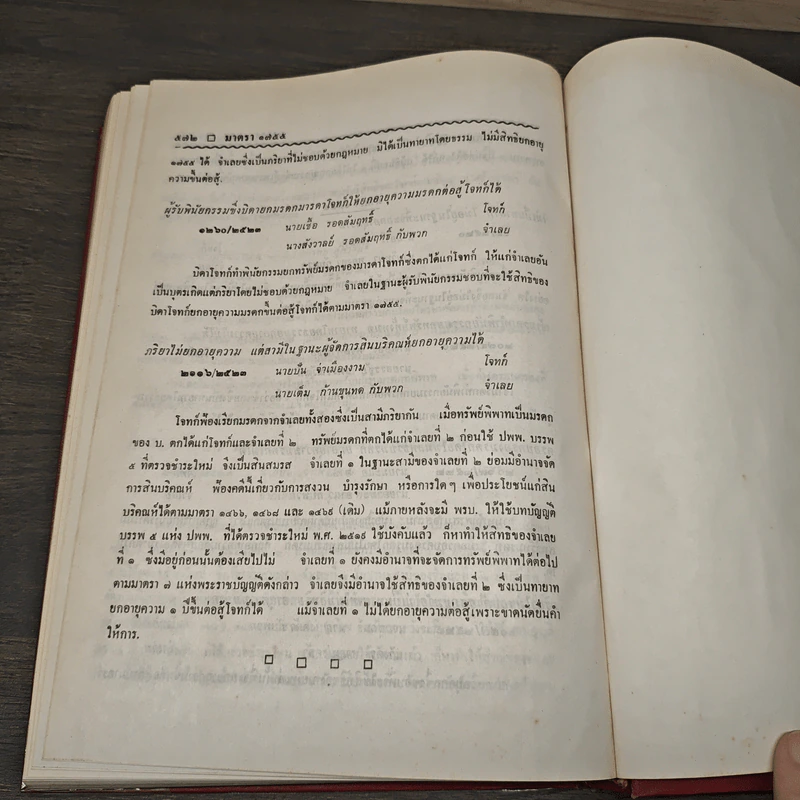 ๕๗๒ □ มาตรา ๑๗๕๕
๑๗๕๕ ได้ จำเลยซึ่งเป็นภริยาที่ไม่ชอบด้วยกฎหมาย มิได้เป็นทายาทโดยธรรม ไม่มีสิทธิยกอายุ
ความขึ้นต่อสู้.
ผู้รับพินัยกรรมซึ่งบิดายกมรดกมารดาโจทก์ให้ยกอายุความมรดกต่อสู้โจทก์ได้
๑๒๖๐/๒๕๒๓ นายเชื้อ รอดสัมฤทธิ์ โจทก์
นางสังวาลย์ รอดสัมฤทธิ์ กับพวก จำเลย
บิดาโจทก์ทำพินัยกรรมยกทรัพย์มรดกของมารดาโจทก์ซึ่งตกได้แก่โจทก์ ให้แก่จำเลยอัน
เป็นบุตรเกิดแต่ภริยาโดยไม่ชอบด้วยกฎหมาย จำเลยในฐานะผู้รับพินัยกรรมชอบที่จะใช้สิทธิของ
บิดาโจทก์ยกอายุความมรดกขึ้นต่อสู้โจทก์ได้ตามมาตรา ๑๗๕๕.
ภริยาไม่ยกอายุความ แต่สามีในฐานะผู้จัดการสินบริคณห์ยกอายุความได้
๒๑๑๖/๒๕๒๓ นายปั่น จ่าเมืองงาม โจทก์
นายเต็ม ก้านขุนทด กับพวก จำเลย
โจทก์ฟ้องเรียกมรดกจากจำเลยทั้งสองซึ่งเป็นสามีภริยากัน เมื่อทรัพย์พิพาทเป็นมรดก
ของ บ. ตกได้แก่โจทก์และจำเลยที่ ๒ ทรัพย์มรดกที่ตกได้แก่จำเลยที่ ๒ ก่อนใช้ ปพพ. บรรพ
๕ ที่ตรวจชำระใหม่ จึงเป็นสินสมรส จำเลยที่ ๑ ในฐานะสามีของจำเลยที่ ๒ ย่อมมีอำนาจจัด
การสินบริคณห์ ฟ้องคดีนี้เกี่ยวกับการสงวน บำรุงรักษา หรือการใด ๆ เพื่อประโยชน์แก่สิน
บริคณห์ได้ตามมาตรา ๑๔๖๖, ๑๔๖๘ และ ๑๔๖๙ (เดิม) แม้ภายหลังจะมี พรบ. ให้ใช้บทบัญญัติ
บรรพ ๕ แห่ง ปพพ. ที่ได้ตรวจชำระใหม่ พ.ศ. ๒๕๑๙ ใช้บังคับแล้ว ก็หาทำให้สิทธิของจำเลย
ที่ ๑ ซึ่งมีอยู่ก่อนนั้นต้องเสียไปไม่ จำเลยที่ ๑ ยังคงมีอำนาจที่จะจัดการทรัพย์พิพาทได้ต่อไป
ตามมาตรา ๗ แห่งพระราชบัญญัติดังกล่าว จำเลยจึงมีอำนาจใช้สิทธิของจำเลยที่ ๒ ซึ่งเป็นทายาท
ยกอายุความ ๑ ปีขึ้นต่อสู้โจทก์ได้ แม้จำเลยที่ ๑ ไม่ได้ยกอายุความต่อสู้เพราะขาดนัดยื่นคำ
ให้การ.
□ □ □ □